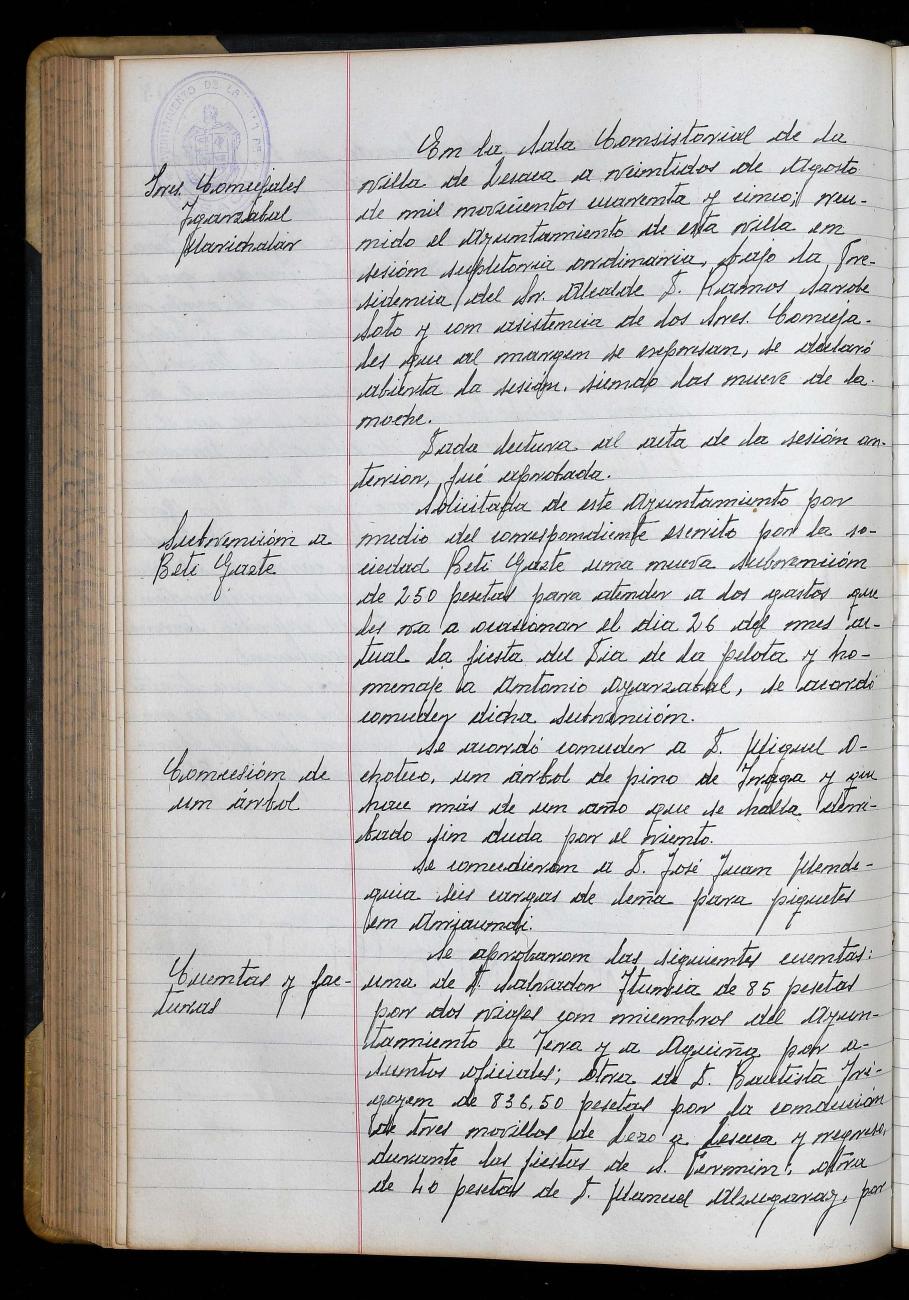 AYUNTAMIENTO DE LA
Sres. Concejales
Igarzabal
Marichalar
En la Sala Consistorial de la
villa de Lesaca a veintidos de Agosto
de mil novecientos cuarenta y cinco; reu-
nido el Ayuntamiento de esta villa en
sesión supletoria ordinaria, bajo la Pre-
sidencia del Sr. Alcalde D. Ramos Sarobe
Soto y con asistencia de los Sres. Conceja-
les que al margen se expresan, se declaró
abierta la sesión, siendo las nueve de la
noche.
Dada lectura al acta de la sesión an-
terior, fué aprobada.
Subvención a
Beti Gazte
Solicitada de este Ayuntamiento por
medio del correspondiente escrito por la so-
ciedad Beti Gazte una nueva subvención
de 250 pesetas para atender a los gastos que
les va a ocasionar el dia 26 del mes ac-
tual la fiesta del Dia de la pelota y ho-
menaje a Antonio Oyarzabal, se acordó
conceder dicha subvención.
Concesión de
un árbol
Se acordó conceder a D. Miguel O-
choteco, un árbol de pino de Fraga y que
hace más de un año que se halla derri-
bado sin duda por el viento.
Se concedieron a D. José Juan Mende-
guia seis cargas de leña para piquetes
en
Cuentas y fac-
turas
Se aprobaron las siguientes cuentas:
una de D. Salvador Iturria de 85 pesetas
por dos viajes con miembros del Ayun-
tamiento a Vera y a Aguiña por a-
suntos oficiales; otra de D. Bautista Iri-
goyen de 836,50 pesetas por la conducción
de tres novillos de Lezo a Lesaca y regreso,
durante las fiestas de S. Fermin; otra
de 40 pesetas de D. Manuel Alzugaray, por